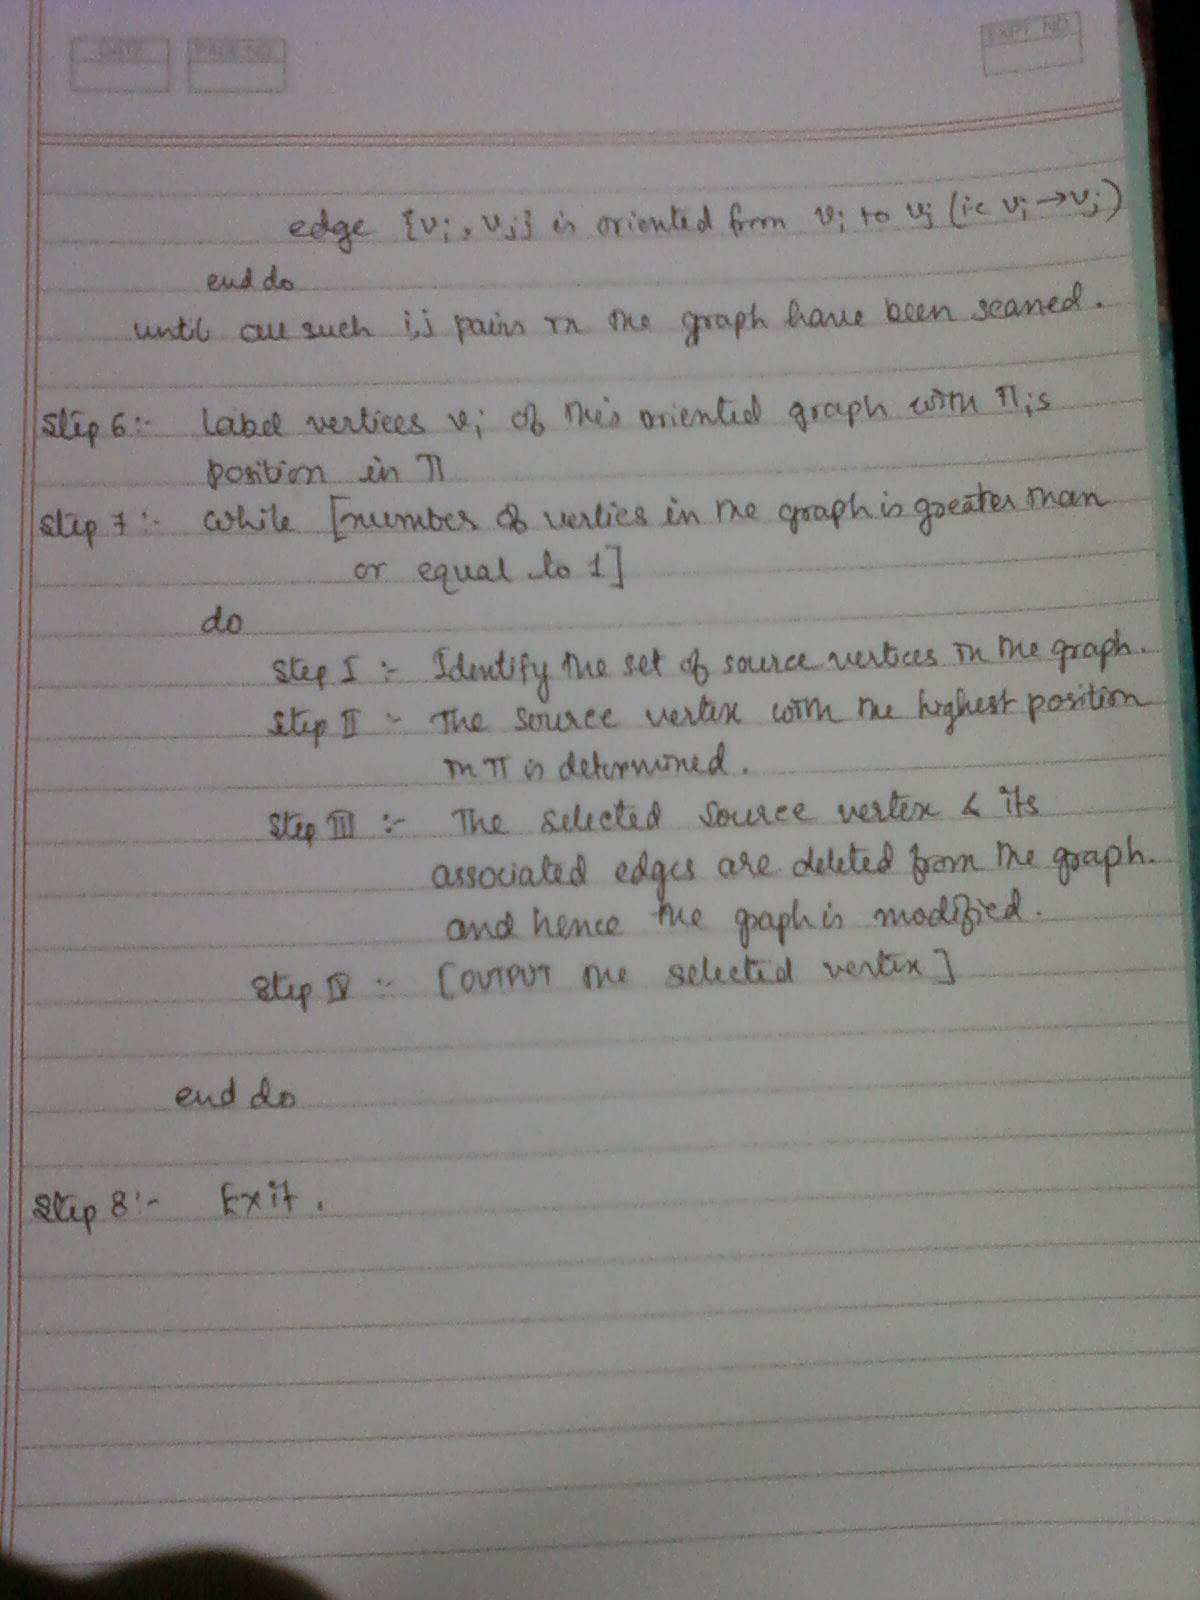 DATE PAGE NO. EXPT. NO.
edge {vi, vj} is oriented from vi to vj (ie vi → vj)
end do
until all such i,j pairs in the graph have been scaned.
Step 6:- Label vertices vi of this oriented graph with πi's
position in π
Step 7:- While [number of verties in the graph is greater than
or equal to 1]
do
Step I :- Identify the set of source vertices in the graph.
Step II :- The source vertex with the highest position
in π is determined.
Step III :- The selected source vertex & its
associated edges are deleted from the graph.
and hence the graph is modified.
Step IV :- [OUTPUT the selected vertex]
end do
Step 8:- Exit.